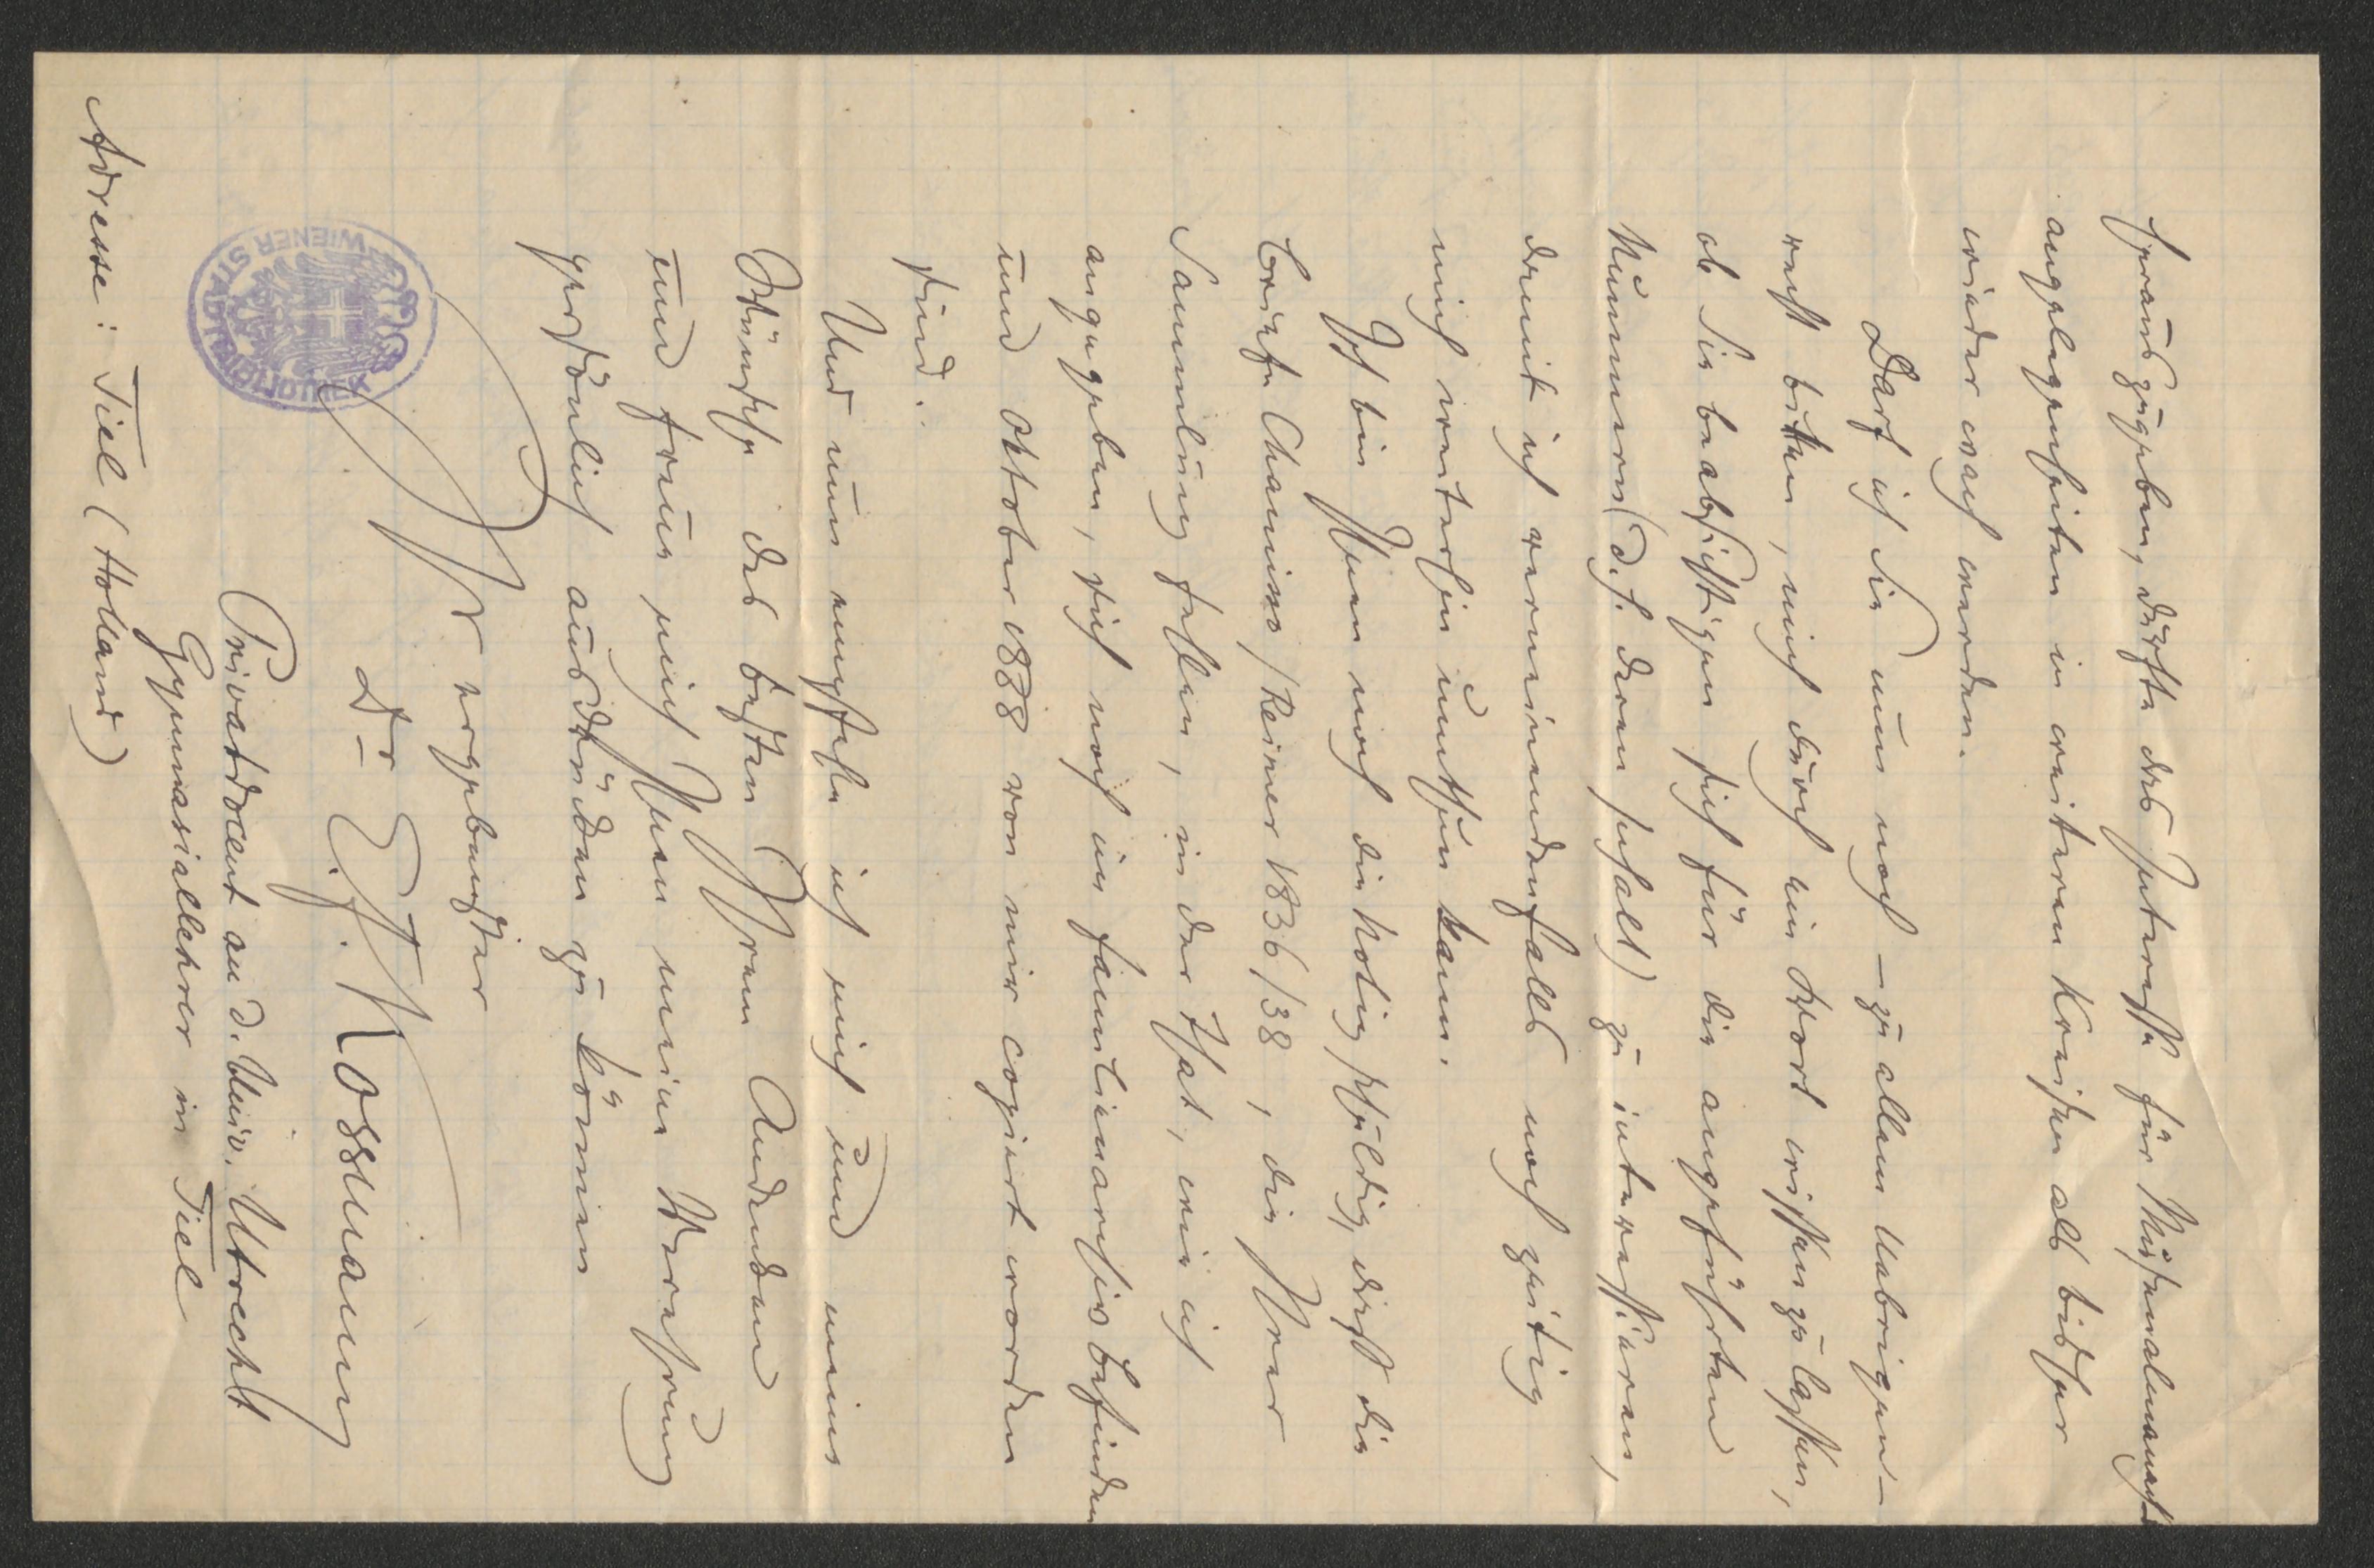 herauszugeben, dürfte das Interesse für Musenalmanachs
angelegenheiten in weiteren Kreisen als bisher
wieder wach werden.
Darf ich Sie nun noch – zu allem Uebrigen –
recht bitten, mich durch ein Wort wissen zu lassen,
ob Sie beabsichtigen sich für die angeführten
Nummern (d. h. deren Inhalt) zu interessieren,
damit ich verneinendenfalls noch zeitig
mich weiterhin umthun kann.
Ich bin Ihnen noch die Notiz schuldig, daß die
Briefe Chamisso / Reimer 1836/38, die Ihrer
Sammlung fehlen, in der That, wie ich
angegeben, sich noch im Familienarchiv befinden
und Oktober 1888 von mir copiert worden
sind.
Und nun empfehle ich mich und meine
Wünsche des besten Ihrem Andenken
und freue mich Ihnen meine Verehrung
persönlich ausdrücken zu können
Ihr ergebenster
Dr E. F. Kossmann
Privatdocent an d. Univ. Utrecht
Gymnasiallehrer in Tiel
WIENER STADTBIBLIOTHEK
Adresse: Tiel (Holland)